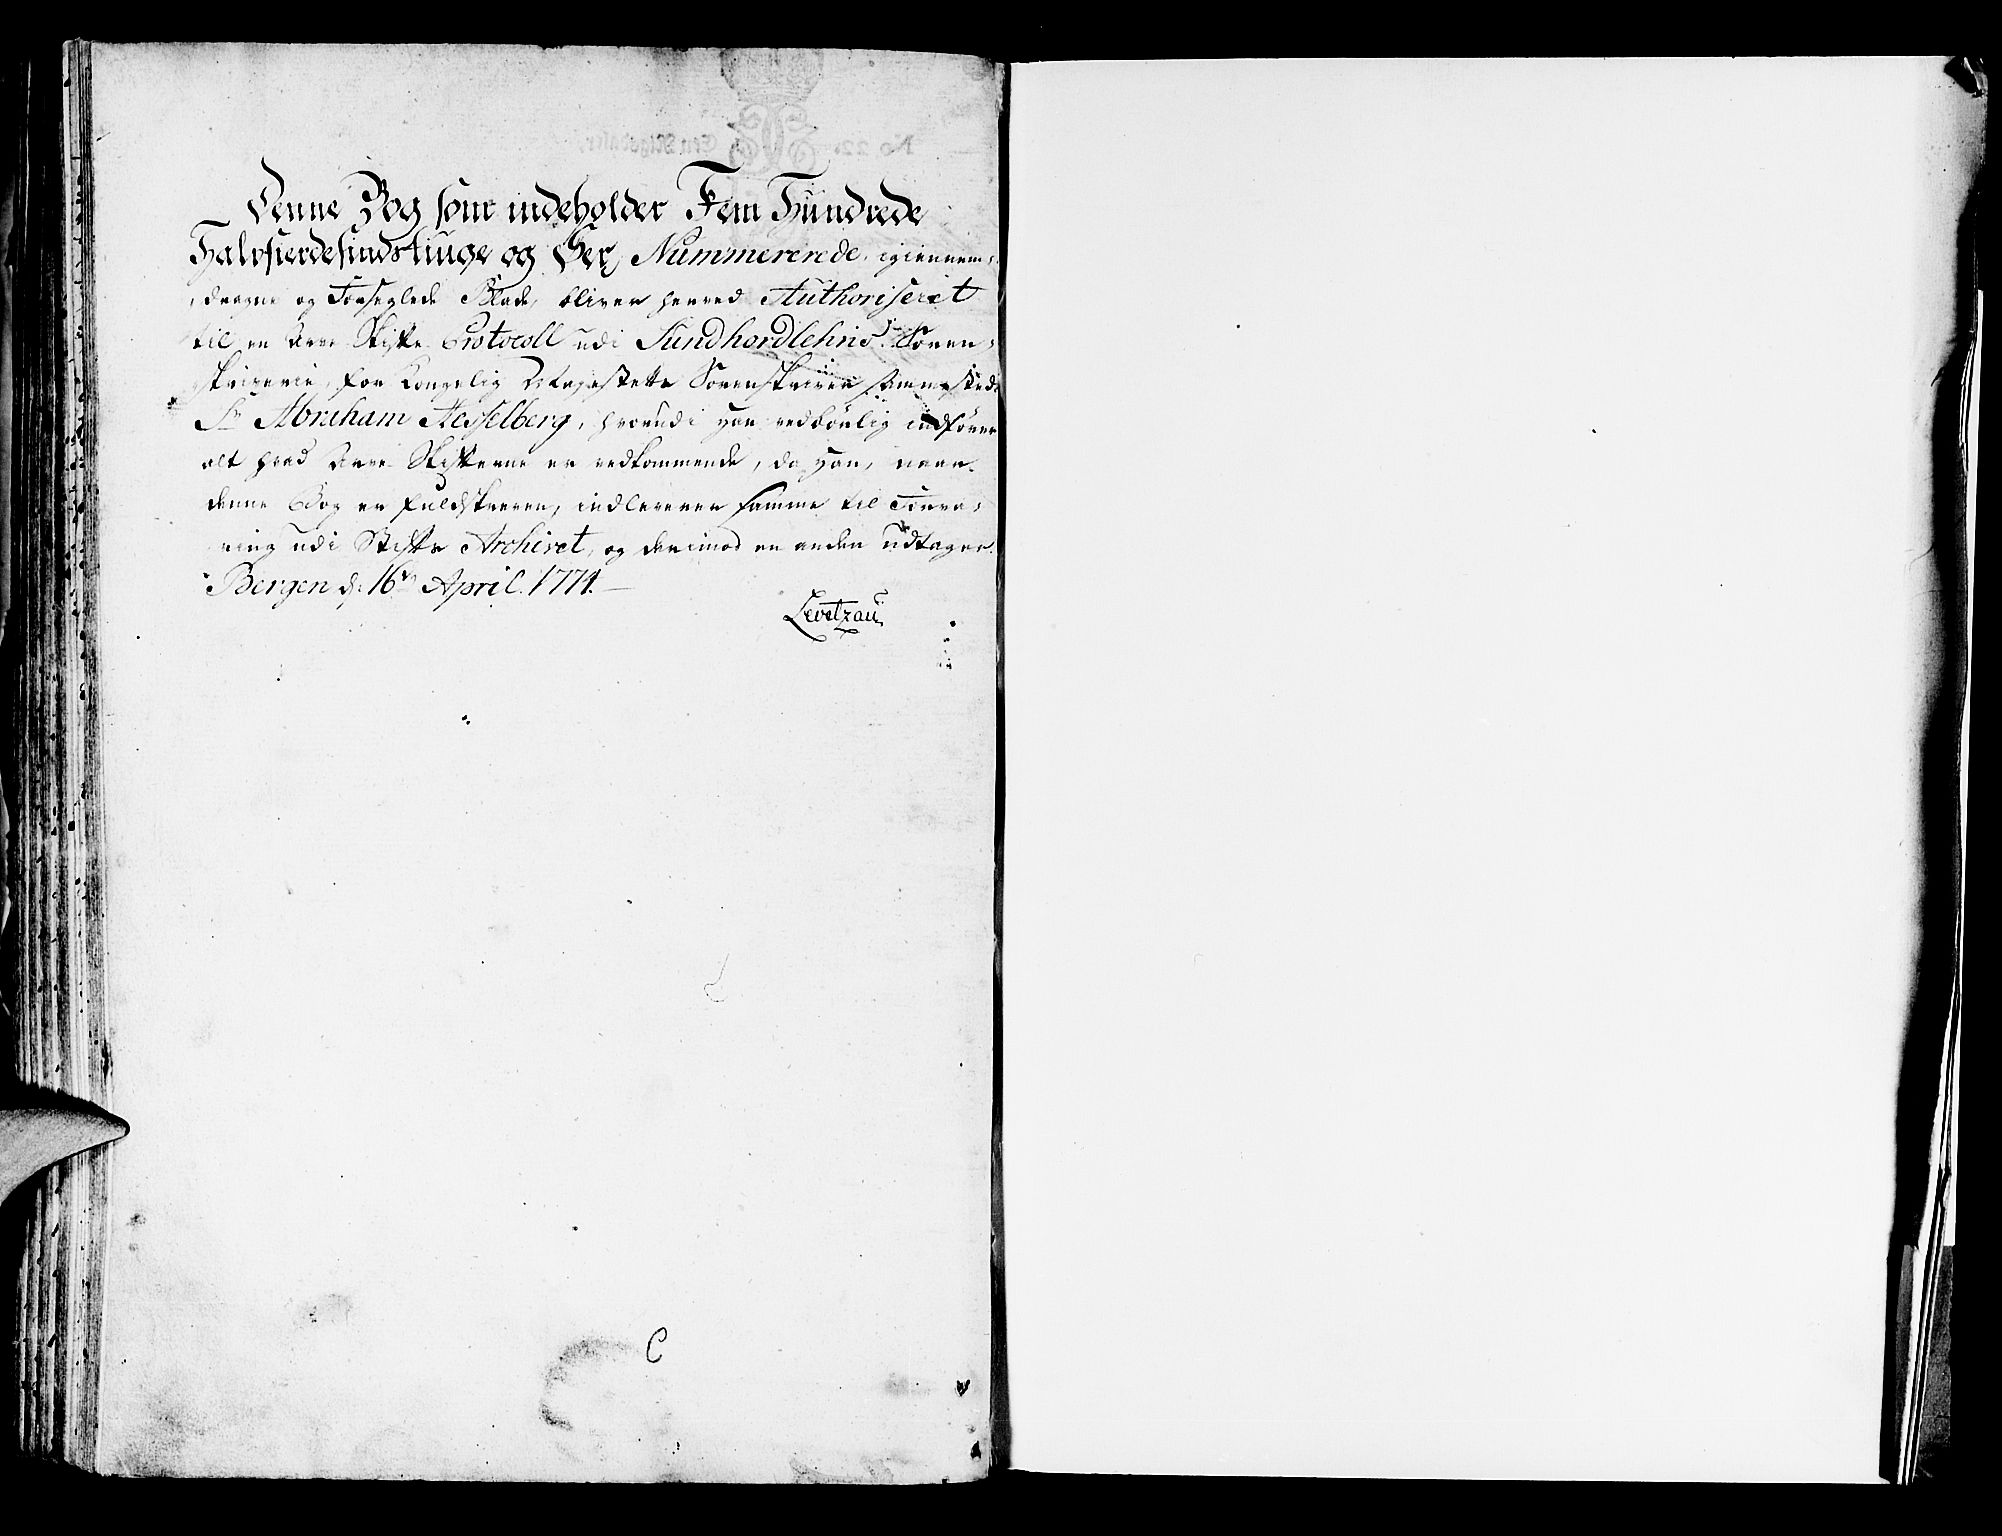 Denne Bog som indeholder Fem Hundrede
Halvfierdesindstiuge og Sex Nummererede, igiennem-
dragne og Forseglede Blade, bliver herved Authoriseret
til en Arve Skifte Protocoll udi Sundhordlehns Soren-
skriverie, for Kongelig Sorenskriver sammesteds
Sr Abraham Hesselberg, hvorudi han vedbørlig indfører
alt hvad Arve Skifterne er vedkommende, da han, naar
denne Bog er fuldskreven, indleverer samme til Forva-
ring udi Stifts Archivet, og derimod en anden udtager.
Bergen d: 16de April. 1774.
Levetzau
C